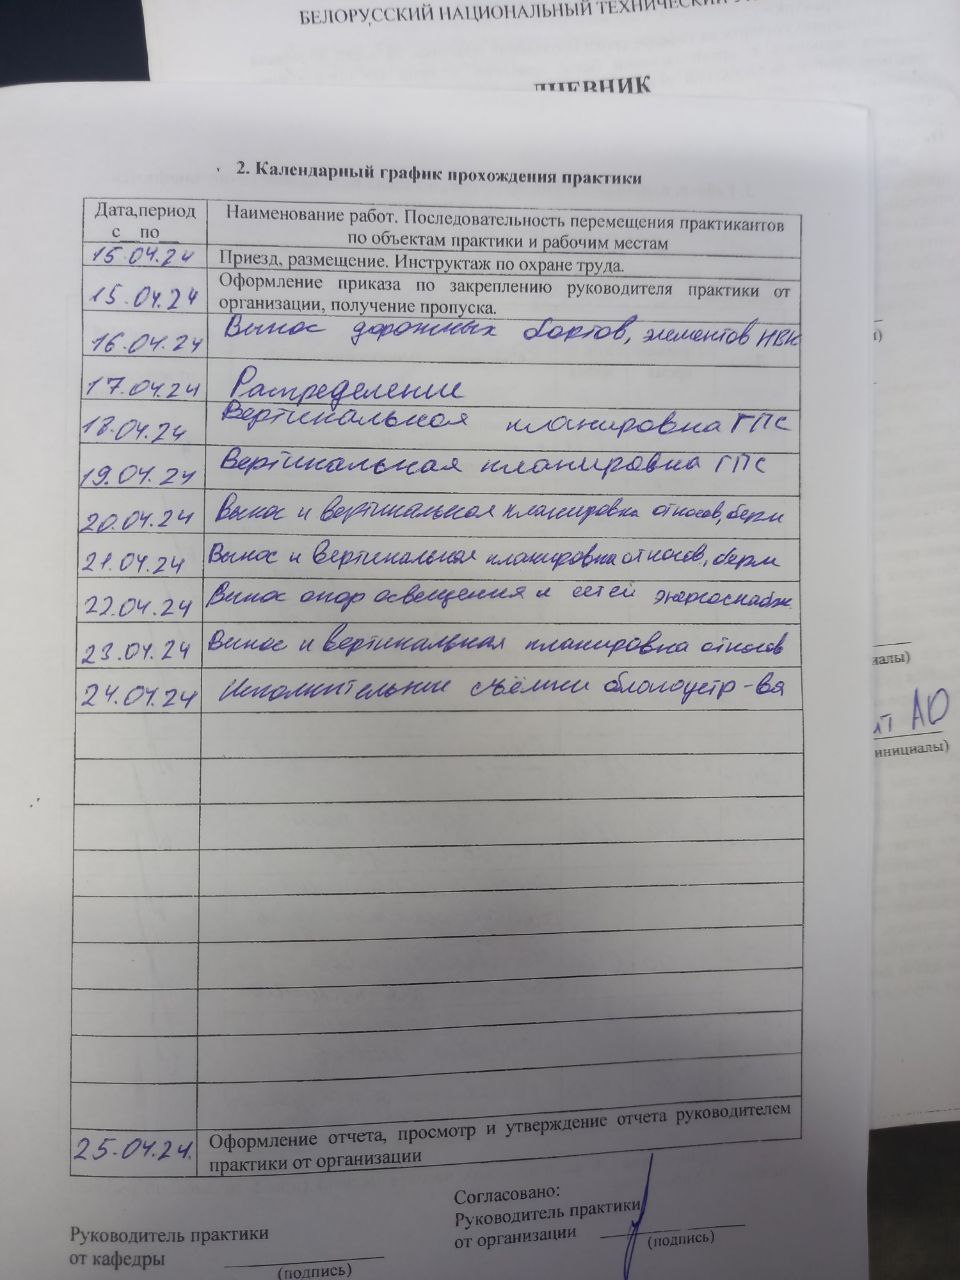 БЕЛОРУССКИЙ НАЦИОНАЛЬНЫЙ ТЕХНИЧЕСКИЙ
ДНЕВНИК
2. Календарный график прохождения практики
Дата,период
с__по__
Наименование работ. Последовательность перемещения практикантов
по объектам практики и рабочим местам
15.04.24 Приезд, размещение. Инструктаж по охране труда.
15.04.24 Оформление приказа по закреплению руководителя практики от
организации, получение пропуска.
16.04.24 Вынос дорожных бортов, элементов НВК
17.04.24 Распределение
18.04.24 Вертикальная планировка ГПС
19.04.24 Вертикальная планировка ГПС
20.04.24 Вынос и вертикальная планировка откосов, берм
21.04.24 Вынос и вертикальная планировка откосов, берм
22.04.24 Вынос опор освещения и сетей энергоснабж.
23.04.24 Вынос и вертикальная планировка откосов
24.04.24 Исполнительные съёмки благоустр-ва
25.04.24. Оформление отчета, просмотр и утверждение отчета руководителем
практики от организации
Руководитель практики
от кафедры
(подпись)
Согласовано:
Руководитель практики
от организации
(подпись)
иалы)
ит АО
инициалы)